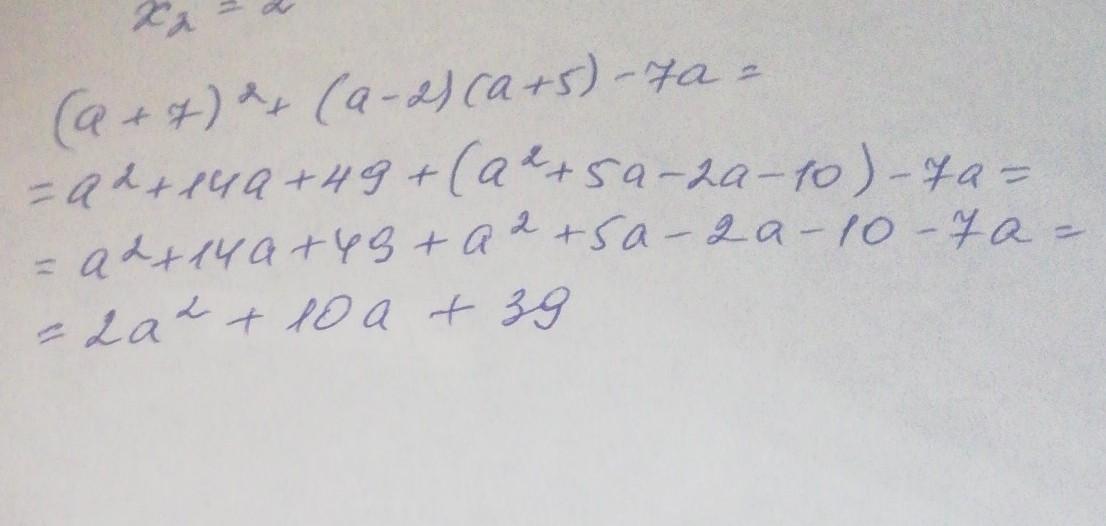 x₂ = 2
(a + 7)² + (a - 2)(a + 5) - 7a =
= a² + 14a + 49 + (a² + 5a - 2a - 10) - 7a =
= a² + 14a + 49 + a² + 5a - 2a - 10 - 7a =
= 2a² + 10a + 39